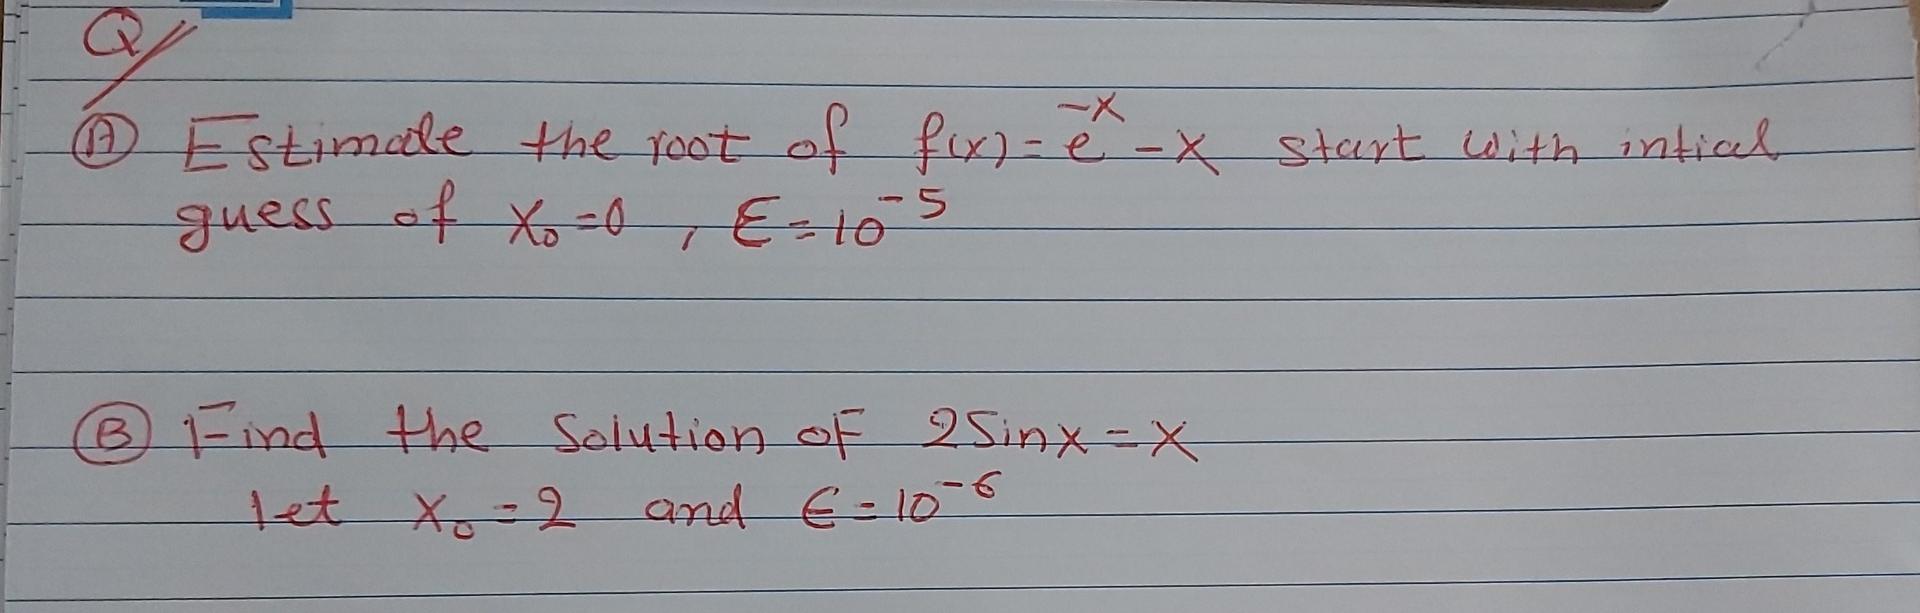 Q//
Ⓐ Estimate the root of f(x)=e^-x - x start with intial
guess of x₀=0, ε=10^-5
Ⓑ Find the Solution of 2Sinx=x
let x₀=2 and ε=10^-6